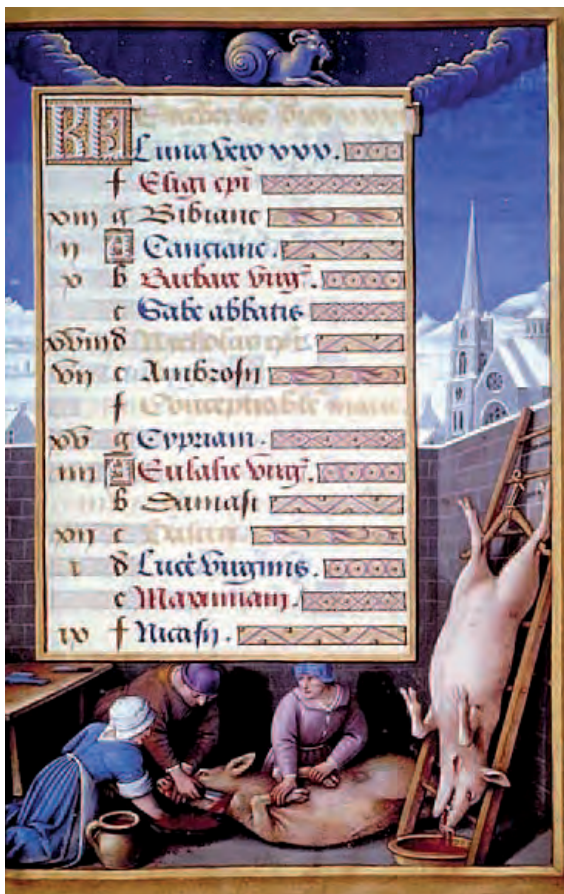 KL dies
Luna vero xxx.
f Eligi epi
xiii g Bibiane
ii A Canciane.
x b Barbare virg.
c Sabe abbatis
xviii d Nicholai epi.
vii e Ambrosii
f Conceptio be marie.
xv g Cypriani.
iiii A Eulalie virg.
b Damasi
xii c
i d Lucie virginis.
e Maximiani.
ix f Nicasii.